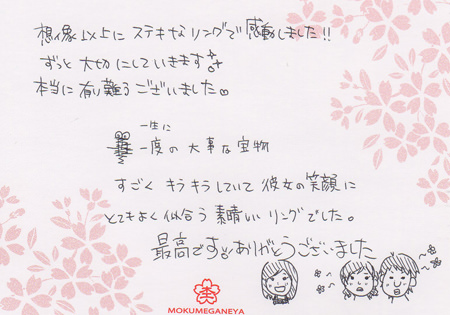 想像以上にステキなリングで感動しました!!
ずっと大切にしていきます
本当に有り難うございました
一生に
一度の大事な宝物
すごくキラキラしていて彼女の笑顔に
とてもよく似合う素晴しいリングでした。
最高です ありがとうございました
MOKUMEGANEYA